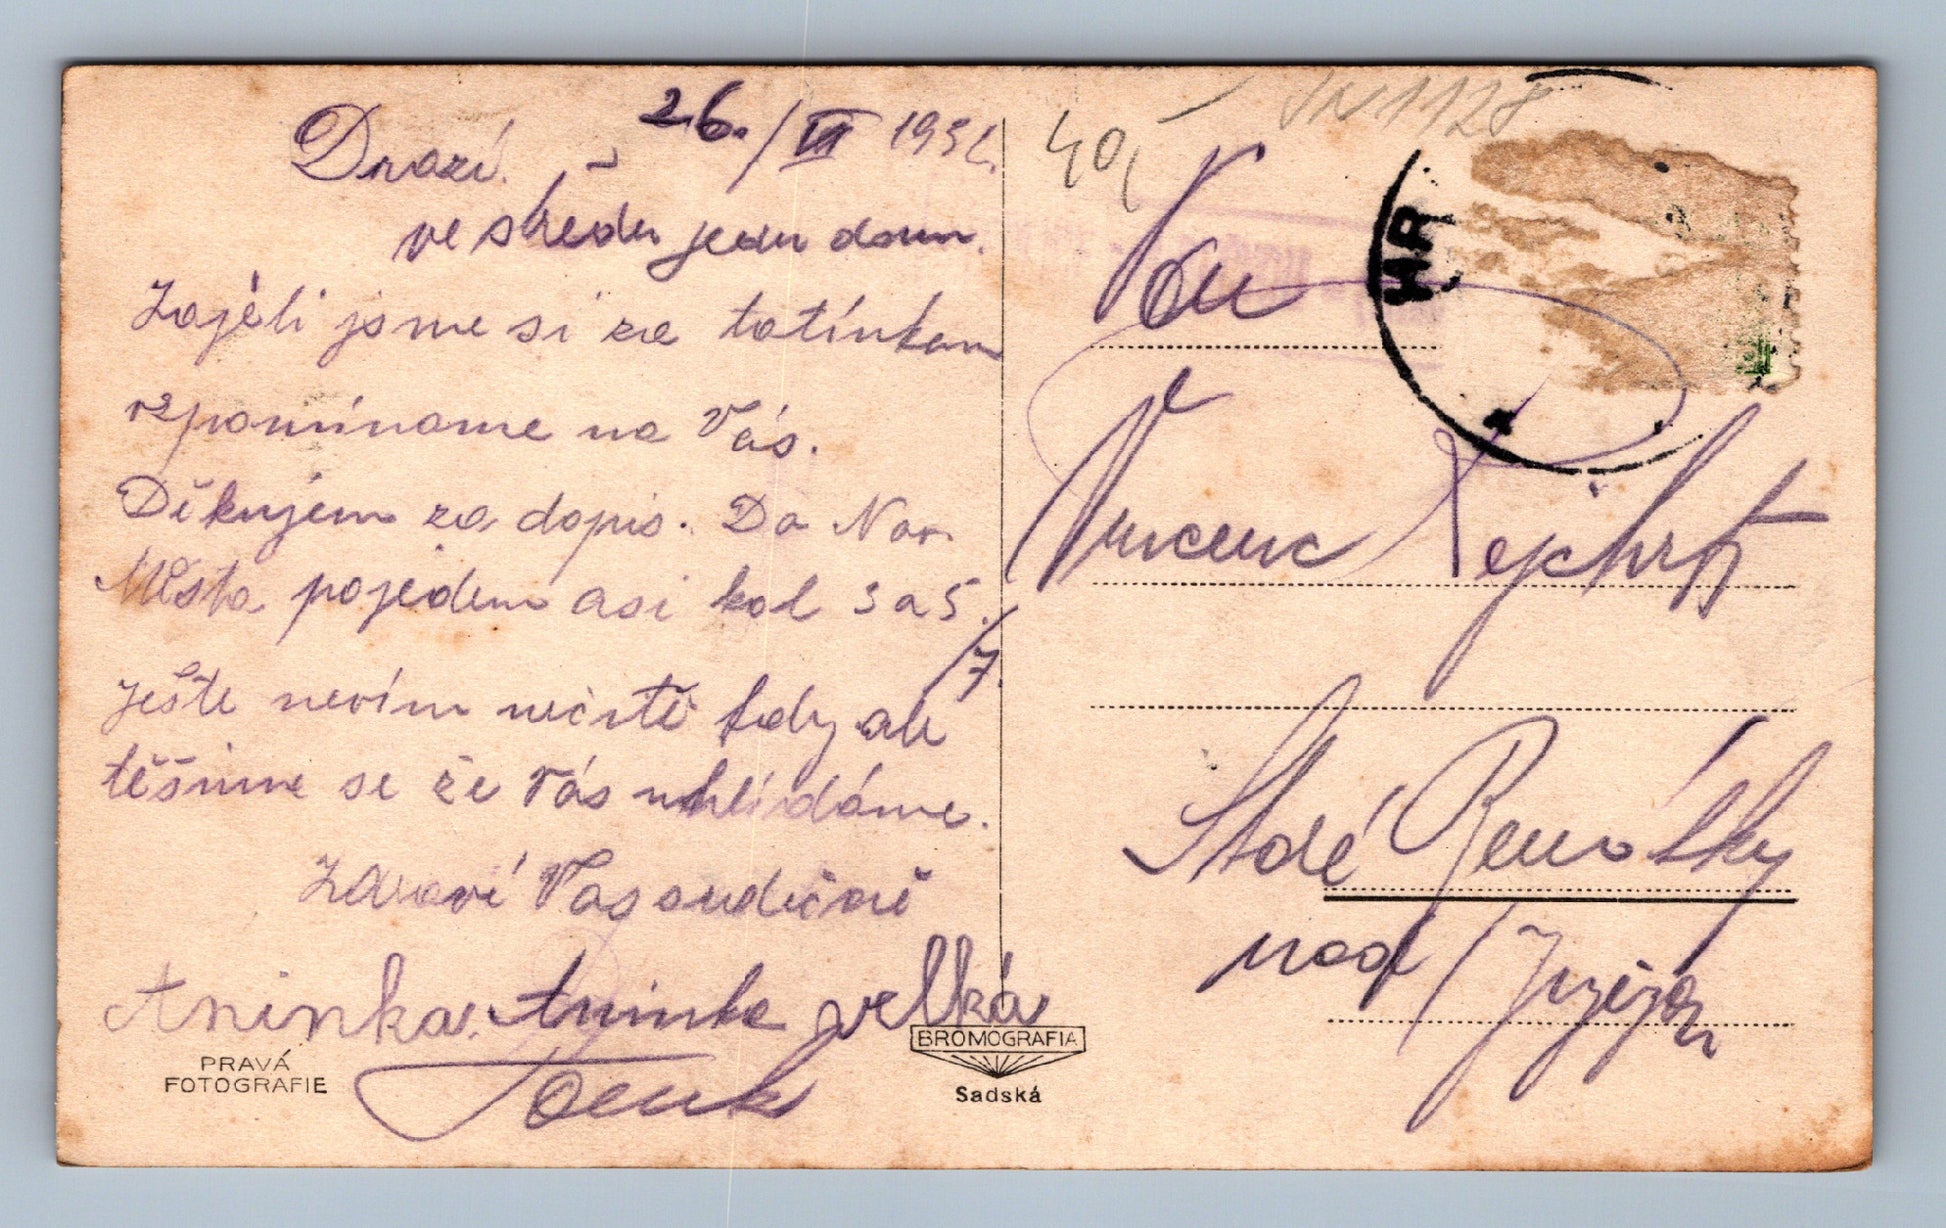 26./VI 193
Drazí.
ve středu jedu dom.
Zajeli jsme si za tatínkem
vzpomínáme na Vás.
Děkujem za dopis. Do Nov.
Města pojedem asi kol 3 a 5./7.
Ještě nevím určitě kdy ale
těšíme se že Vás uhlídáme.
Zdraví Vás srdečně
Aninka. Aninka velká
PRAVÁ
FOTOGRAFIE
BROMOGRAFIA
Sadská
40,-
1128
Pan
HR
Vincenc Tejchrt
Staré Benátky
nad / Jizerou